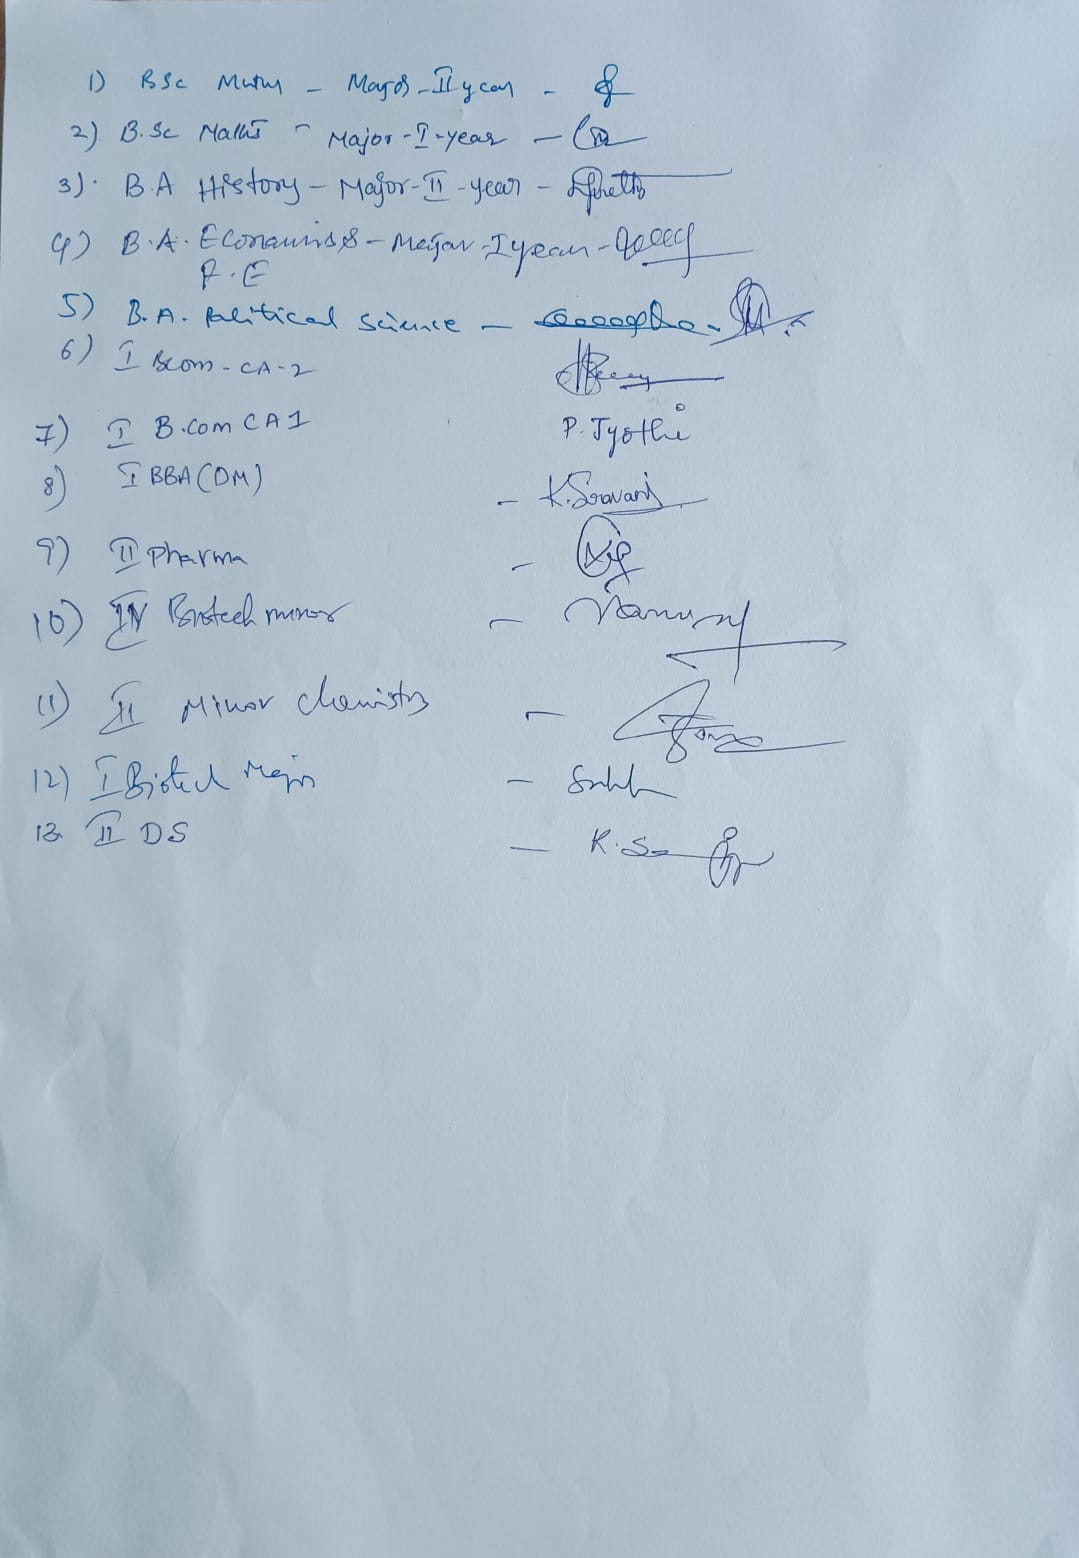 1) BSc Maths - Major-II year -
2) B.Sc Maths - Major-I-year -
3). B.A History - Major-II-year -
4) B.A. Economiss - Major-I year -
P.E
5) B.A. Political Science -
6) I Bcom-CA-2
7) I B.com CA1 P. Jyothi
8) I BBA(DM) - K.Sravani
9) II Pharma -
10) IV Biotech minor -
11) II Minor chemistry -
12) I Biotech Major -
13. II DS - K.S